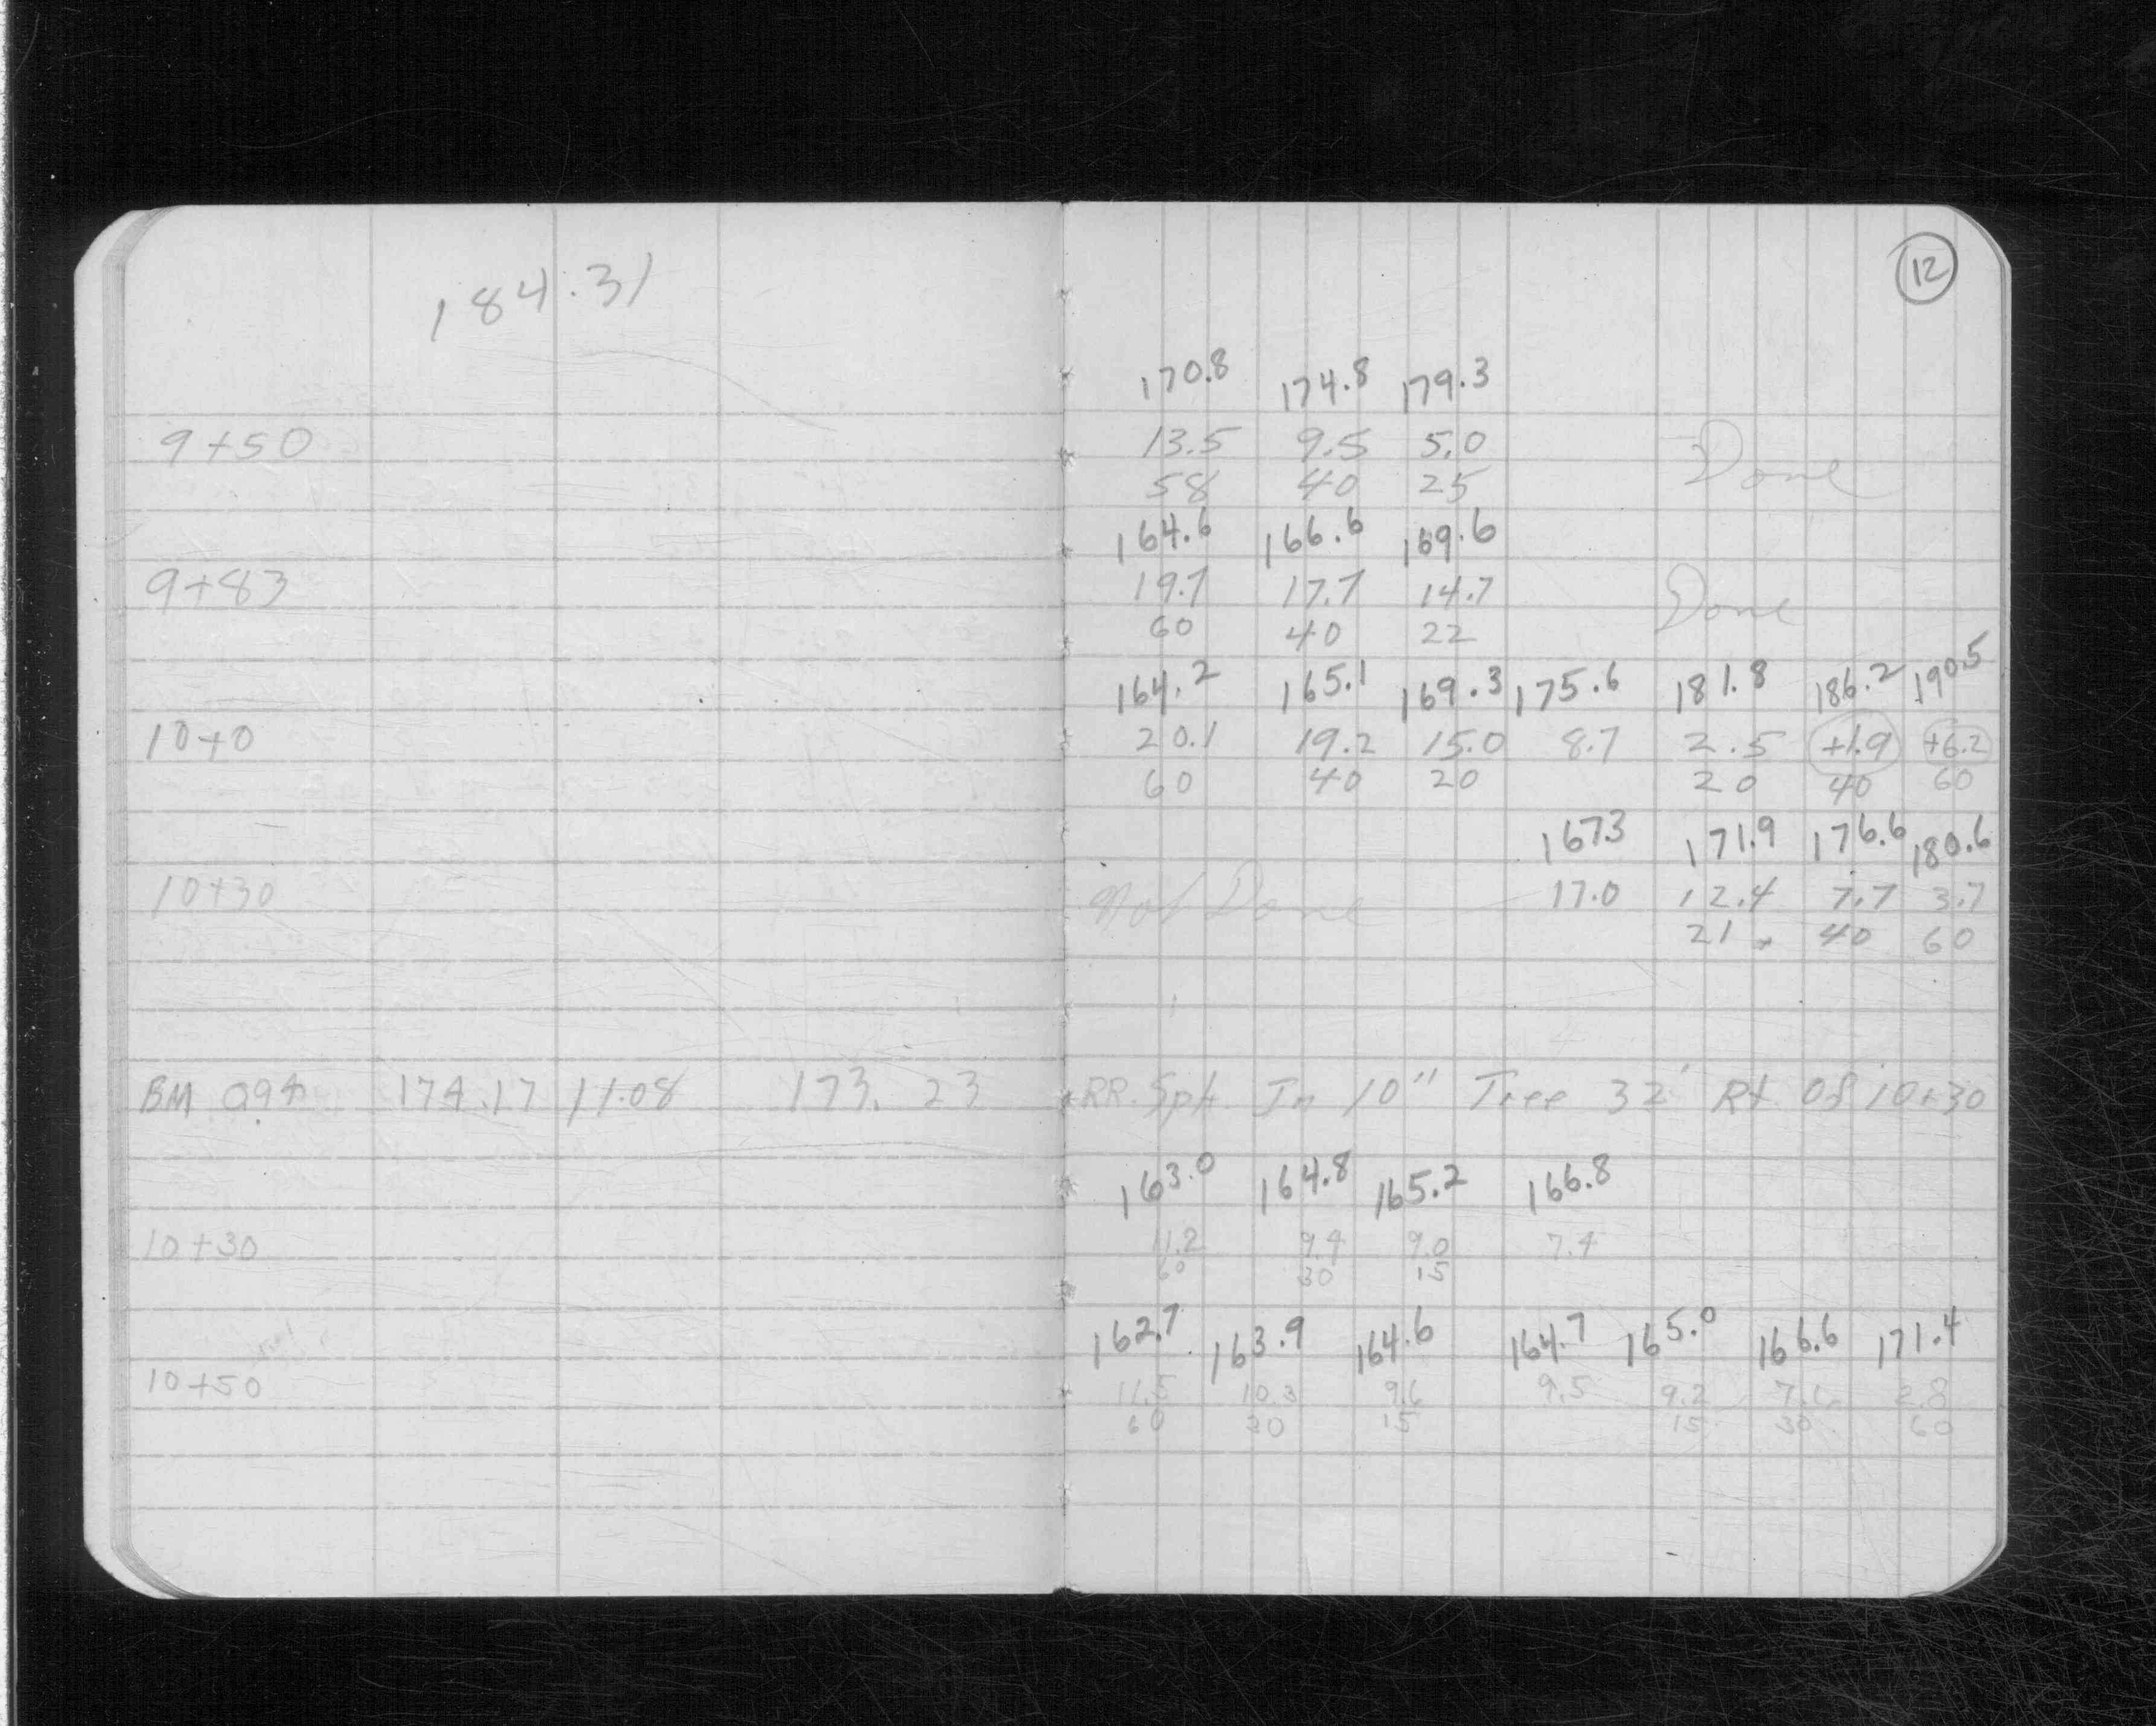 184.31
12
170.8 174.8 179.3
9+50 13.5 9.5 5.0 Done
58 40 25
164.6 166.6 169.6
9+83 19.7 17.7 14.7 Done
60 40 22
164.2 165.1 169.3 175.6 181.8 186.2 190.5
10+0 20.1 19.2 15.0 8.7 2.5 +1.9 +6.2
60 40 20 20 40 60
167.3 171.9 176.6 180.6
10+30 Not Done 17.0 12.4 7.7 3.7
21 40 60
BM 0.94 174.17 11.08 173.23 RR. Spk. In 10" Tree 32' Rt. Of 10+30
163.0 164.8 165.2 166.8
10+30 11.2 9.4 9.0 7.4
60 30 15
162.7 163.9 164.6 164.7 165.0 166.6 171.4
10+50 11.5 10.3 9.6 9.5 9.2 7.6 2.8
60 30 15 15 30 60